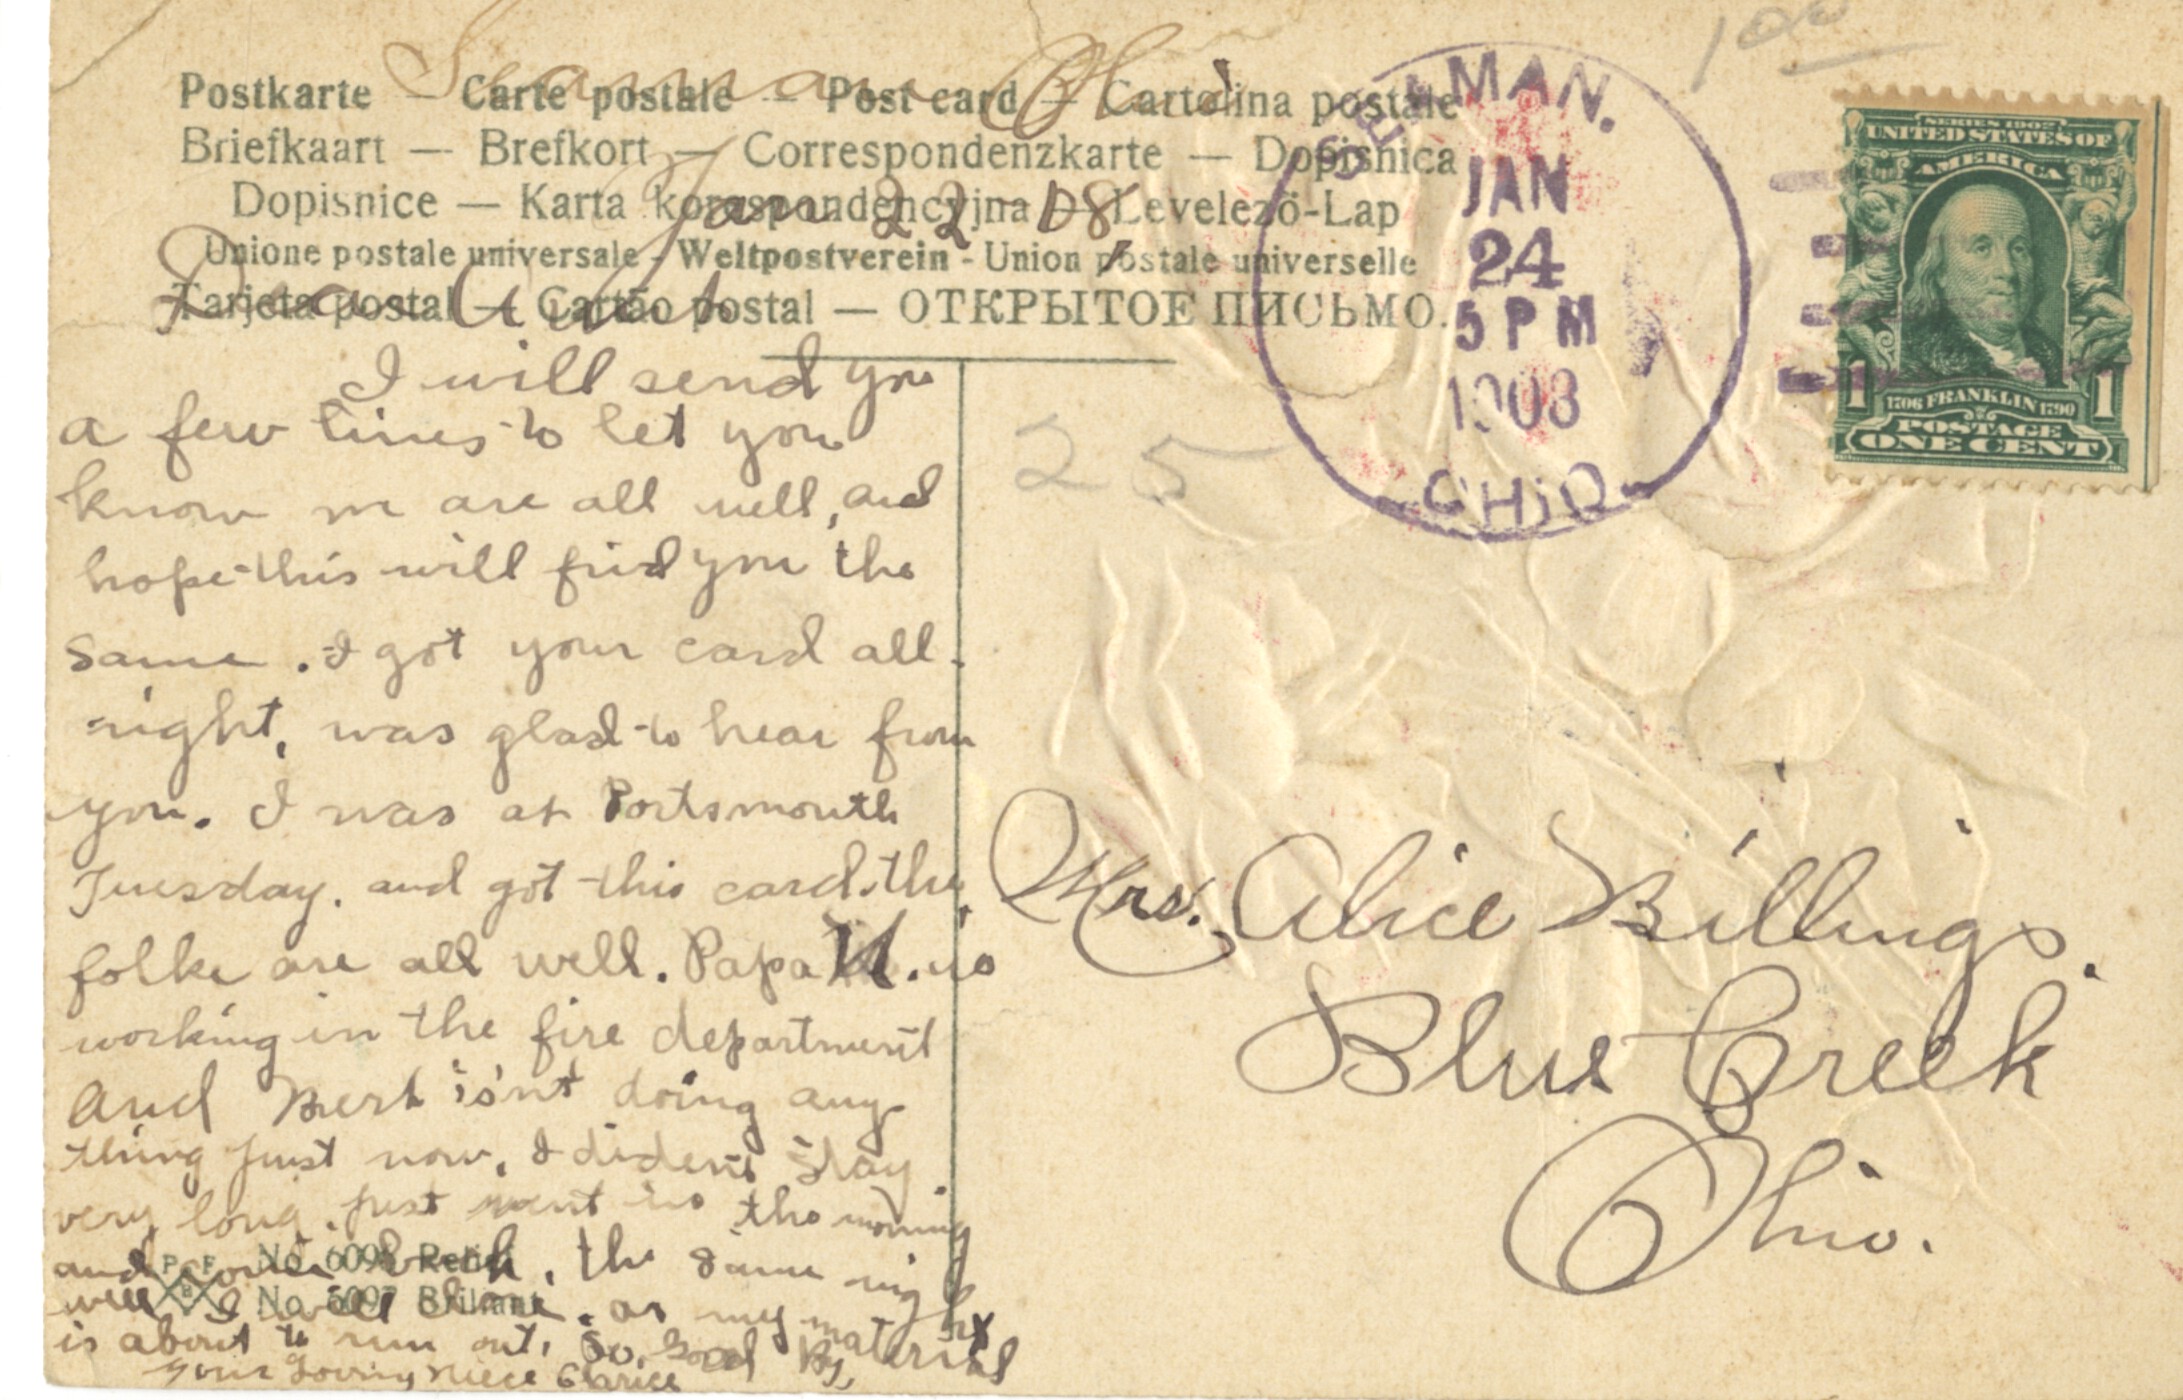 100
Seaman Ohio
Postkarte — Carte postale — Post card — Cartolina postale
Briefkaart — Brefkort — Correspondenzkarte — Dopisnica
Dopisnice — Karta korespondencyjna — Levelező-Lap
Jan 22 08
Unione postale universale - Weltpostverein - Union postale universelle
Tarjeta postal — Cartão postal — ОТКРЫТОЕ ПИСЬМО.
Dear Aunt
SEAMAN.
JAN
24
5 PM
1908
OHIO
SERIES 1902
UNITED STATES OF
AMERICA
1 1
1706 FRANKLIN 1790
POSTAGE
ONE CENT
25
I will send you
a few lines to let you
know we are all well, and
hope this will find you the
same. I got your card all
right, was glad to hear from
you. I was at Portsmouth
Tuesday. and got this card. the
folks are all well. Papa N. is
working in the fire department
and Mert is'nt doing any-
thing just now, I diden't stay
very long. just went in the morning
and come back, the same night
well I will close. as my material
is about to run out, So, Good By,
your loving niece Clarice
P F B
No. 6096 Relief
No. 6097 Brillant
Mrs. Alice Billings.
Blue Creek
Ohio.